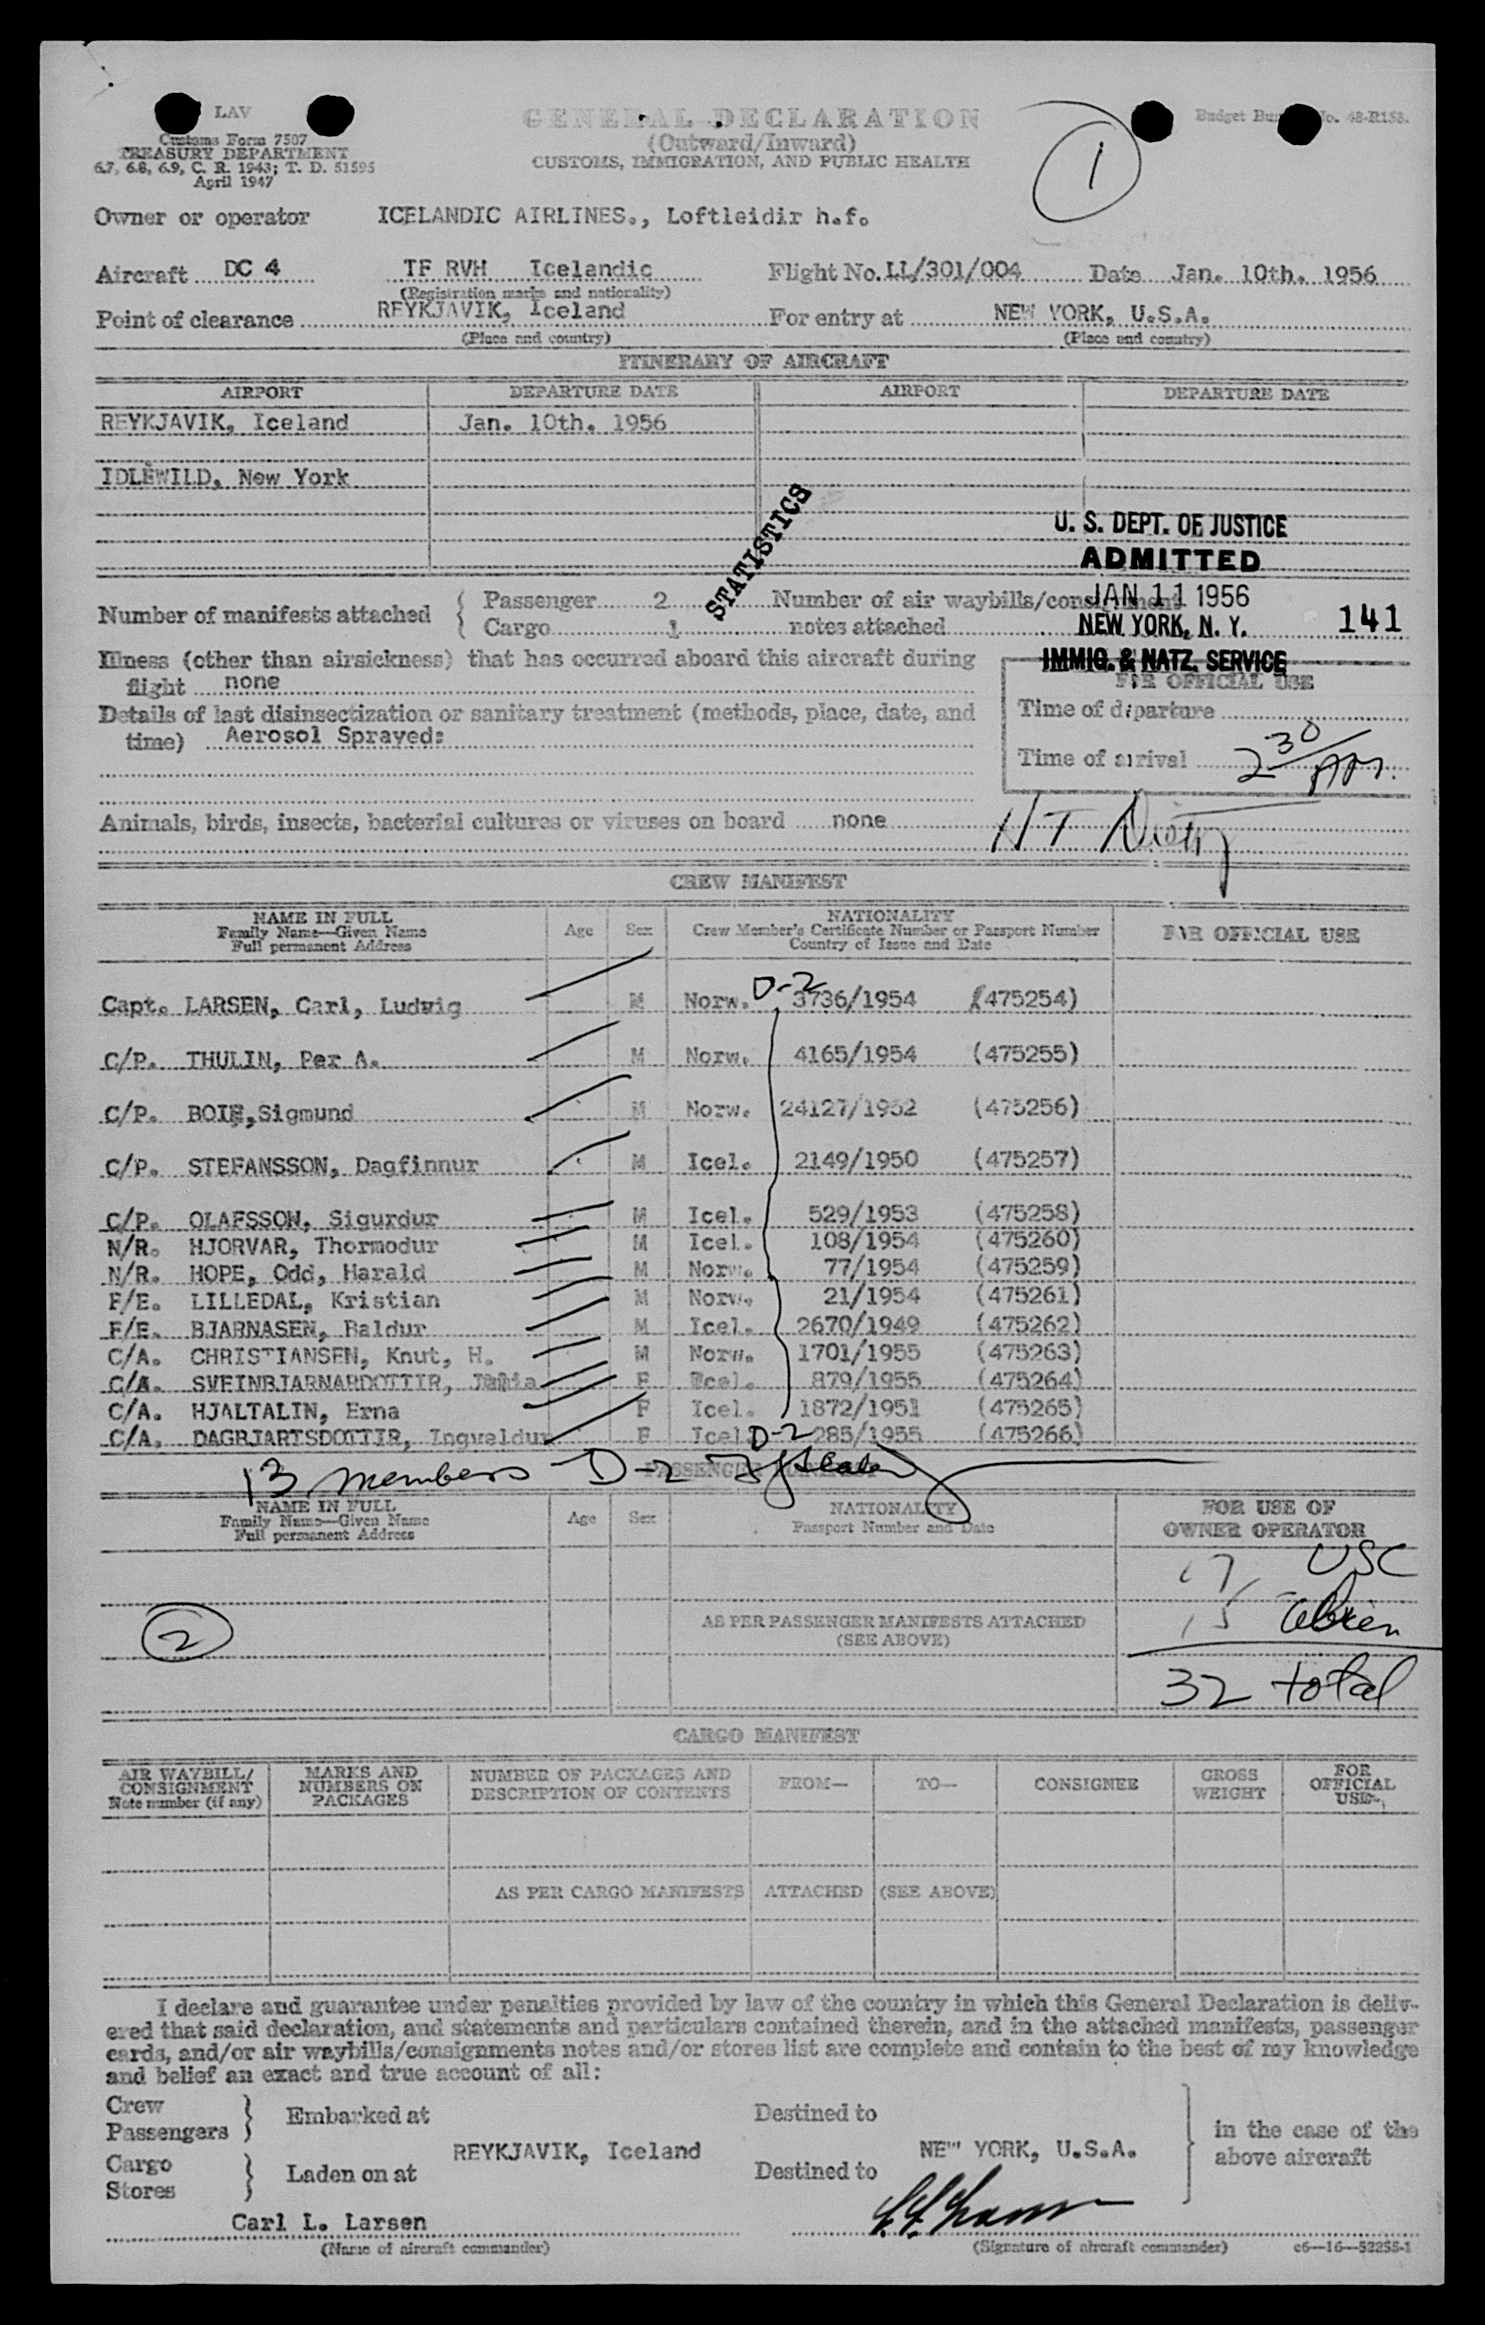 LAV
Customs Form 7507
TREASURY DEPARTMENT
6.7, 6.8, 6.9, C. R. 1943; T. D. 51595
April 1947
GENERAL DECLARATION
(Outward/Inward)
CUSTOMS, IMMIGRATION, AND PUBLIC HEALTH
1
Budget No. 48-R158.
Owner or operator ICELANDIC AIRLINES., Loftleidir h.f.
Aircraft DC 4 TF RVH Icelandic Flight No. LL/301/004 Date Jan. 10th. 1956
(Registration marks and nationality)
Point of clearance REYKJAVIK, Iceland For entry at NEW YORK, U.S.A.
(Place and country) (Place and country)
ITINERARY OF AIRCRAFT
AIRPORT DEPARTURE DATE AIRPORT DEPARTURE DATE
REYKJAVIK, Iceland Jan. 10th. 1956
IDLEWILD, New York
STATISTICS
U. S. DEPT. OF JUSTICE
ADMITTED
JAN 11 1956
NEW YORK, N. Y. 141
IMMIG. & NATZ. SERVICE
Number of manifests attached { Passenger 2 Number of air waybills/consignment
Cargo 1 notes attached
Illness (other than airsickness) that has occurred aboard this aircraft during
flight none
Details of last disinsectization or sanitary treatment (methods, place, date, and
time) Aerosol Sprayed:
FOR OFFICIAL USE
Time of departure
Time of arrival 2 30/AM.
Animals, birds, insects, bacterial cultures or viruses on board none
CREW MANIFEST
NAME IN FULL
Family Name—Given Name
Full permanent Address
Age Sex
NATIONALITY
Crew Member's Certificate Number or Passport Number
Country of Issue and Date
FOR OFFICIAL USE
D-2
Capt. LARSEN, Carl, Ludwig M Norw. 3736/1954 (475254)
C/P. THULIN, Per A. M Norw. 4165/1954 (475255)
C/P. BOIE, Sigmund M Norw. 24127/1952 (475256)
C/P. STEFANSSON, Dagfinnur M Icel. 2149/1950 (475257)
C/P. OLAFSSON, Sigurdur M Icel. 529/1953 (475258)
N/R. HJORVAR, Thormodur M Icel. 108/1954 (475260)
N/R. HOPE, Odd, Harald M Norw. 77/1954 (475259)
F/E. LILLEDAL, Kristian M Norw. 21/1954 (475261)
F/E. BJARNASEN, Baldur M Icel. 2670/1949 (475262)
C/A. CHRISTIANSEN, Knut, H. M Norw. 1701/1955 (475263)
C/A. SVEINBJARNARDOTTIR, F Icel. 879/1955 (475264)
C/A. HJALTALIN, Erna F Icel. 1872/1951 (475265)
C/A. DAGBJARTSDOTTIR, Ingveldur F Icel. D-2 285/1955 (475266)
13 members D-2
PASSENGER MANIFEST
NAME IN FULL
Family Name—Given Name
Full permanent Address
Age Sex
NATIONALITY
Passport Number and Date
FOR USE OF
OWNER OPERATOR
17 USC
AS PER PASSENGER MANIFESTS ATTACHED
(SEE ABOVE)
2
15 alien
32 total
CARGO MANIFEST
AIR WAYBILL/
CONSIGNMENT
Note number (if any)
MARKS AND
NUMBERS ON
PACKAGES
NUMBER OF PACKAGES AND
DESCRIPTION OF CONTENTS
FROM— TO— CONSIGNEE
GROSS
WEIGHT
FOR
OFFICIAL
USE
AS PER CARGO MANIFESTS ATTACHED (SEE ABOVE)
I declare and guarantee under penalties provided by law of the country in which this General Declaration is deliv-
ered that said declaration, and statements and particulars contained therein, and in the attached manifests, passenger
cards, and/or air waybills/consignments notes and/or stores list are complete and contain to the best of my knowledge
and belief an exact and true account of all:
Crew
Passengers } Embarked at Destined to
REYKJAVIK, Iceland NEW YORK, U.S.A.
Cargo
Stores } Laden on at Destined to
in the case of the
above aircraft
Carl L. Larsen
(Name of aircraft commander) (Signature of aircraft commander) c6—16—52255-1